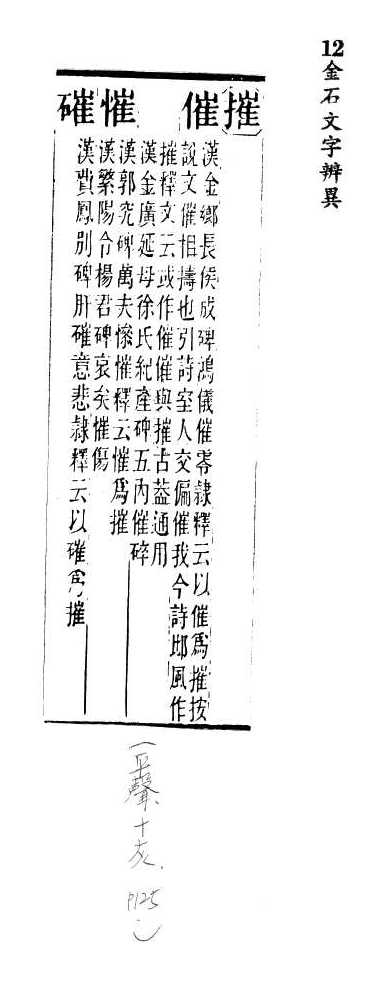 12金石文字辨異
摧
催
漢金鄉長侯成碑鴻儀催零隸釋云以催爲摧按
說文催相擣也引詩室人交偏催我今詩邶風作
摧釋文云或作催催與摧古葢通用
漢金廣延母徐氏紀產碑五內催碎
慛
漢郭究碑萬夫慘慛釋云慛爲摧
漢繁陽令楊君碑哀矣慛傷
磪
漢費鳳別碑肝磪意悲隸釋云以磪爲摧
(平聲、十灰. P125)